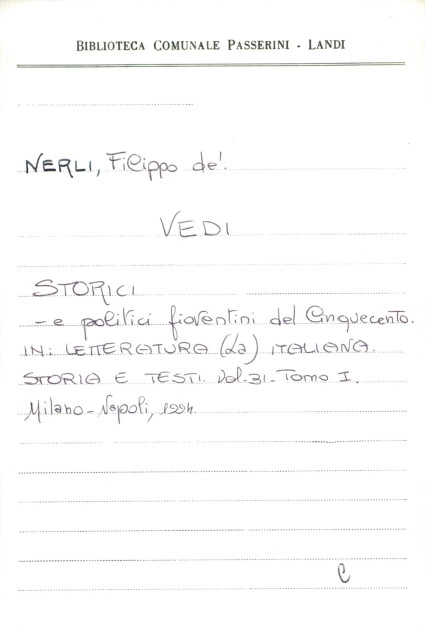 BIBLIOTECA COMUNALE PASSERINI - LANDI
NERLI, Filippo de'.
VEDI
STORICI
- e politici fiorentini del Cinquecento.
IN: LETTERATURA (La) ITALIANA.
STORIA E TESTI. Vol. 31. Tomo I.
Milano - Napoli, 1994.
C